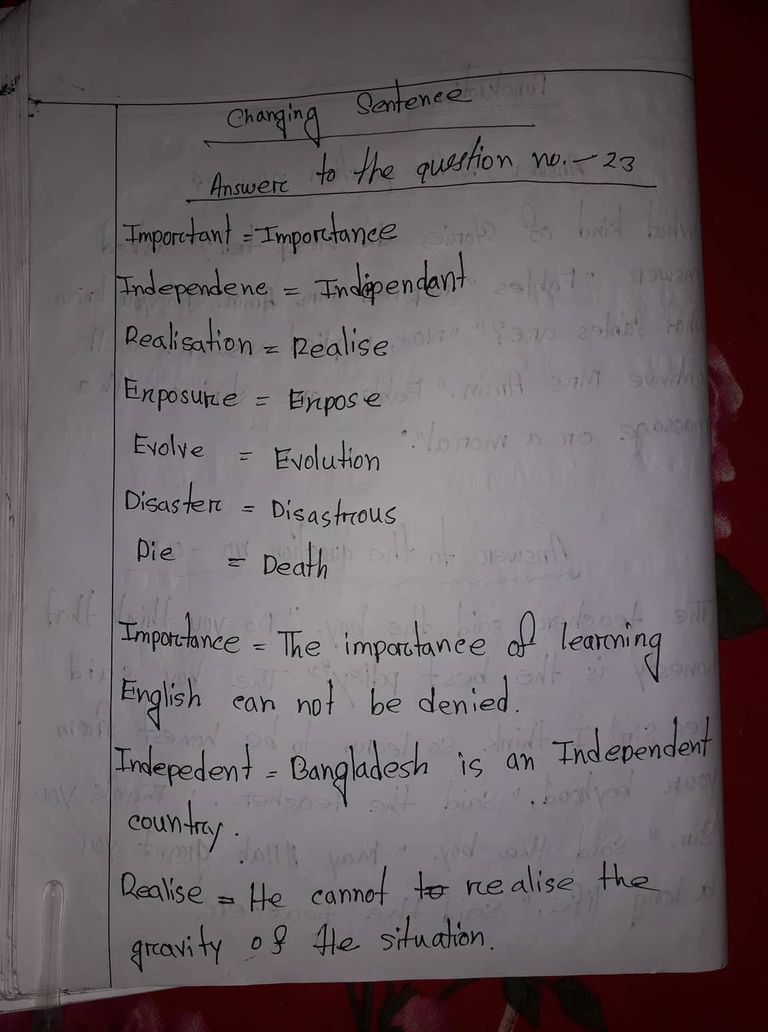 Changing Sentence
Answer to the question no.-23
Important = Importance
Independene = Indipendent
Realisation = Realise
Exposure = Expose
Evolve = Evolution
Disaster = Disastrous
Die = Death
Importance = The importance of learning
English can not be denied.
Indepedent = Bangladesh is an Independent
country.
Realise = He cannot to realise the
gravity of the situation.